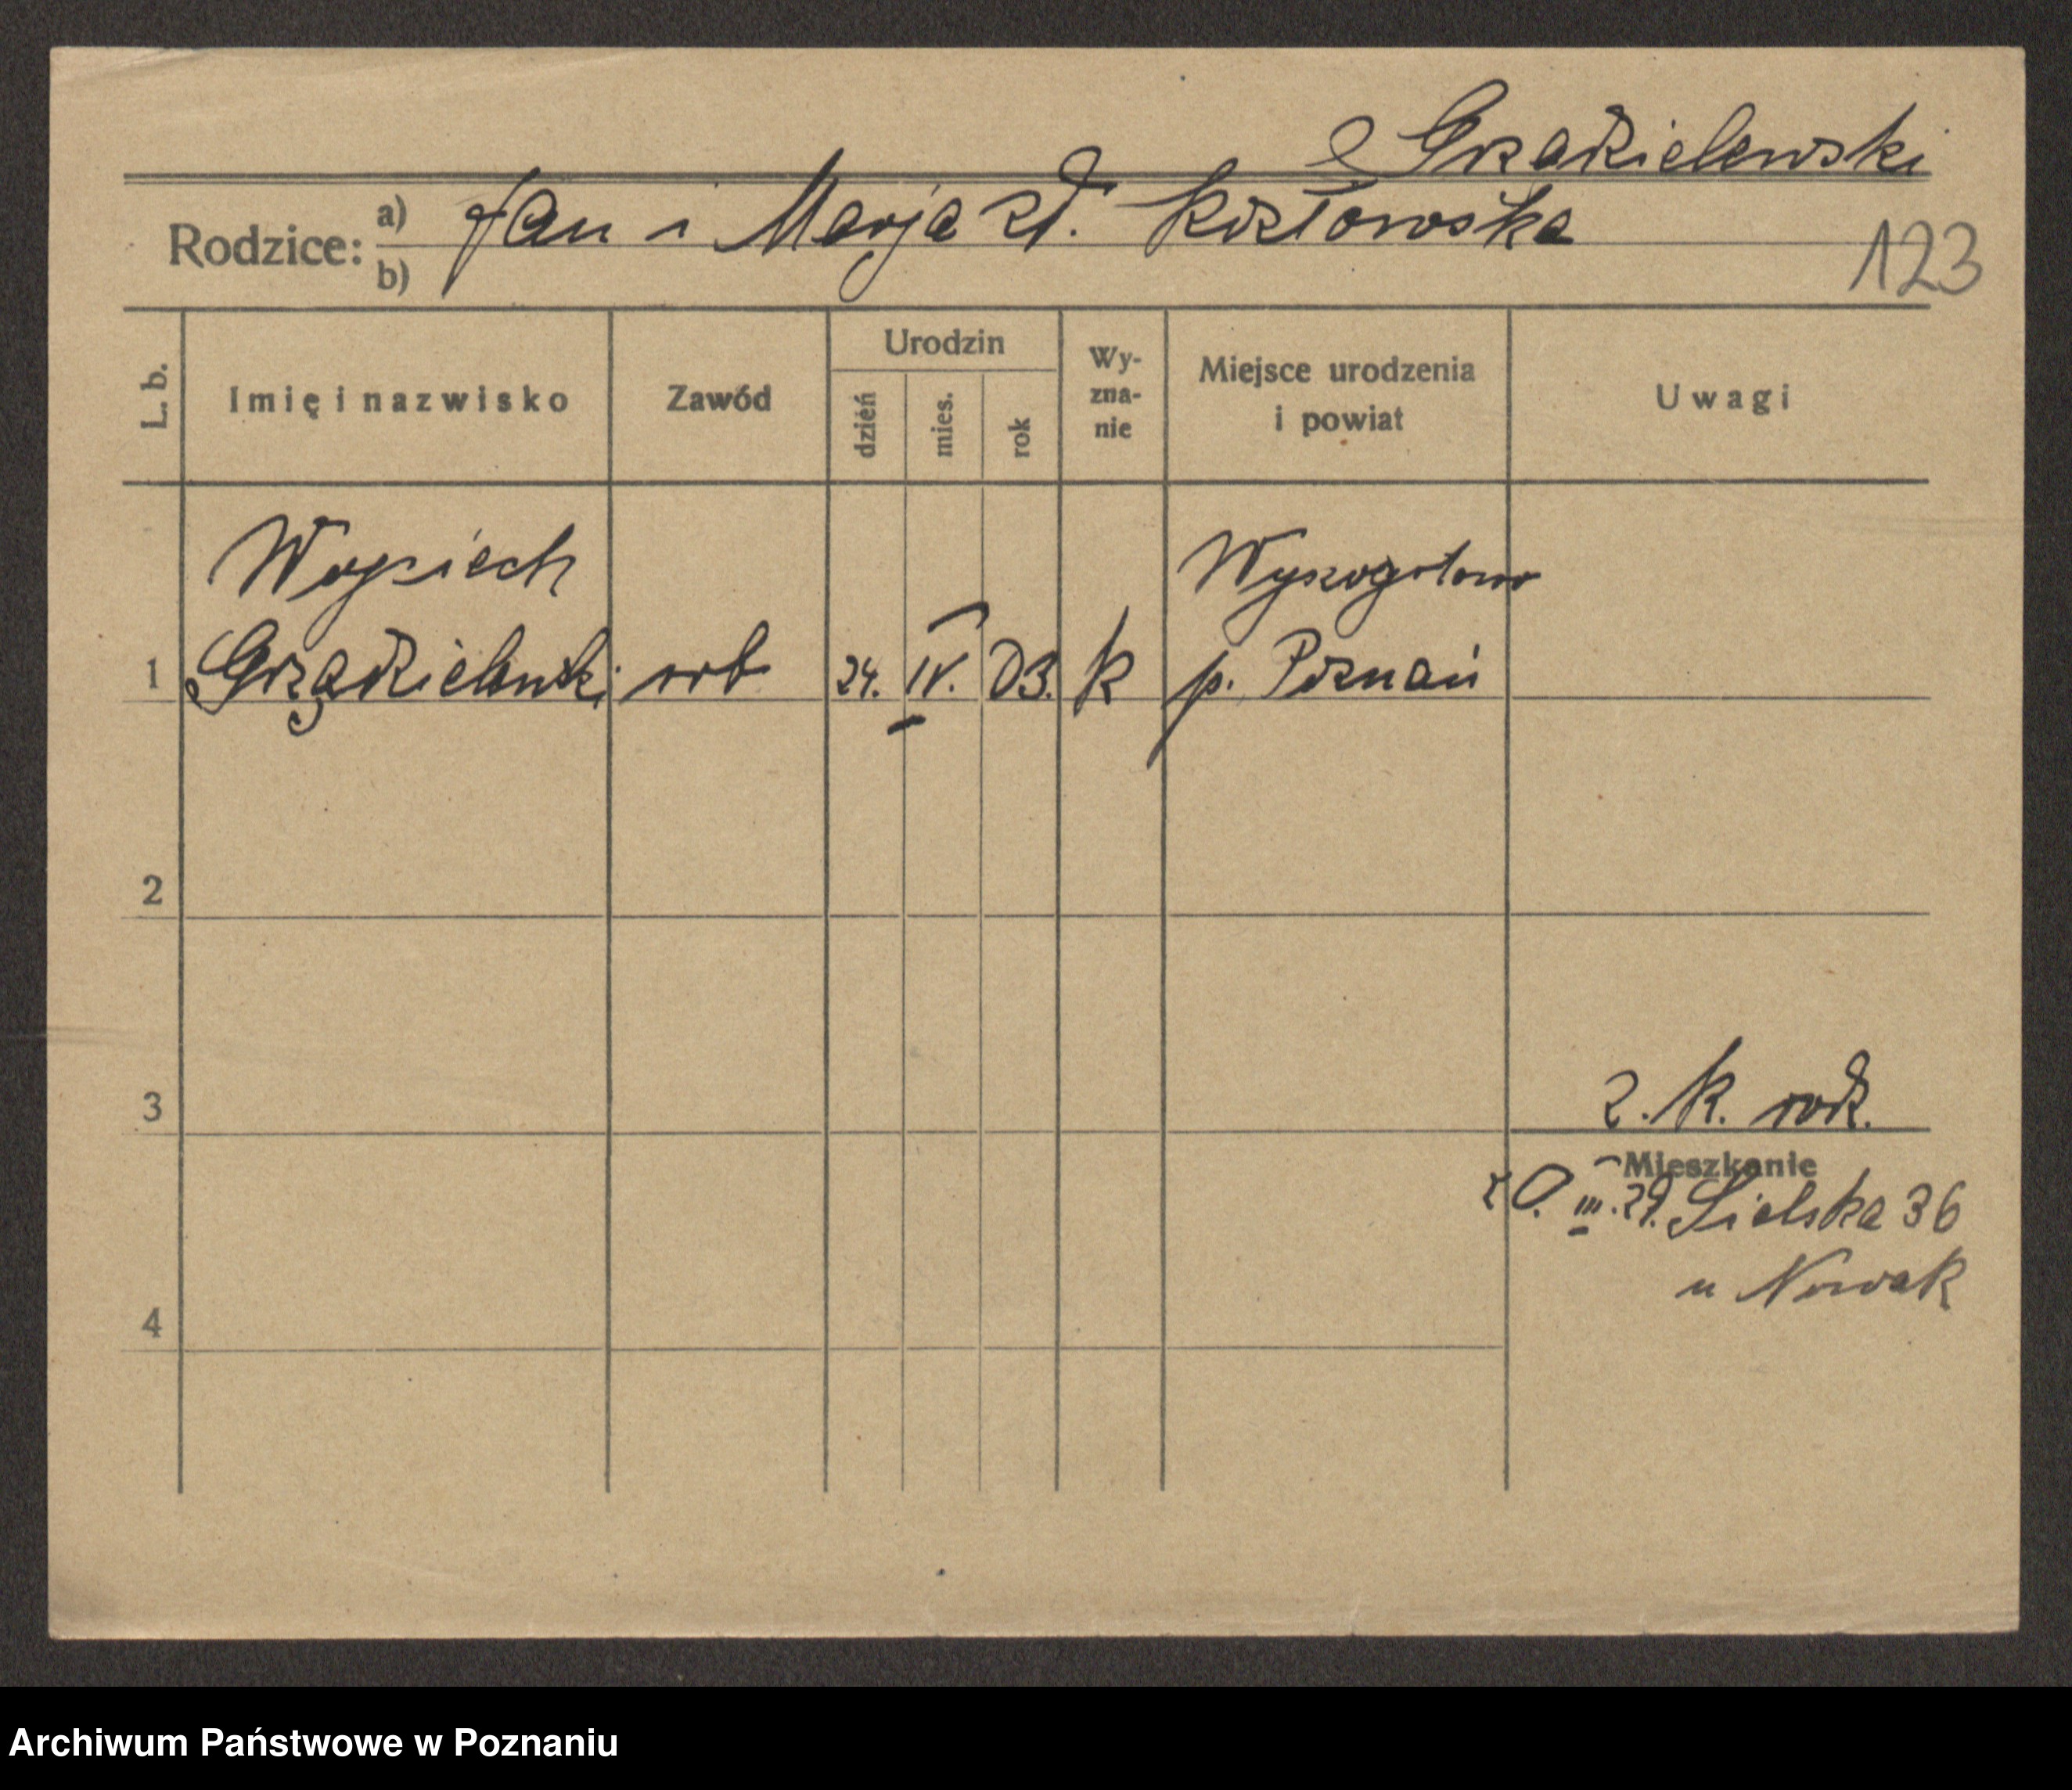 Grządzielewski
Rodzice: a) Jan i Marja zd. Kozłowska
b)
123
L. b.
Imię i nazwisko
Zawód
Urodzin
dzień
mies.
rok
Wy-
zna-
nie
Miejsce urodzenia
i powiat
Uwagi
Wojciech
Wysogotowo
1 Grządzielewski rob 24. IV. 03. k p. Poznań
2
3
z. k. rodz.
Mieszkanie
20. III. 29. Sielska 36
u Nowak
4
Archiwum Państwowe w Poznaniu